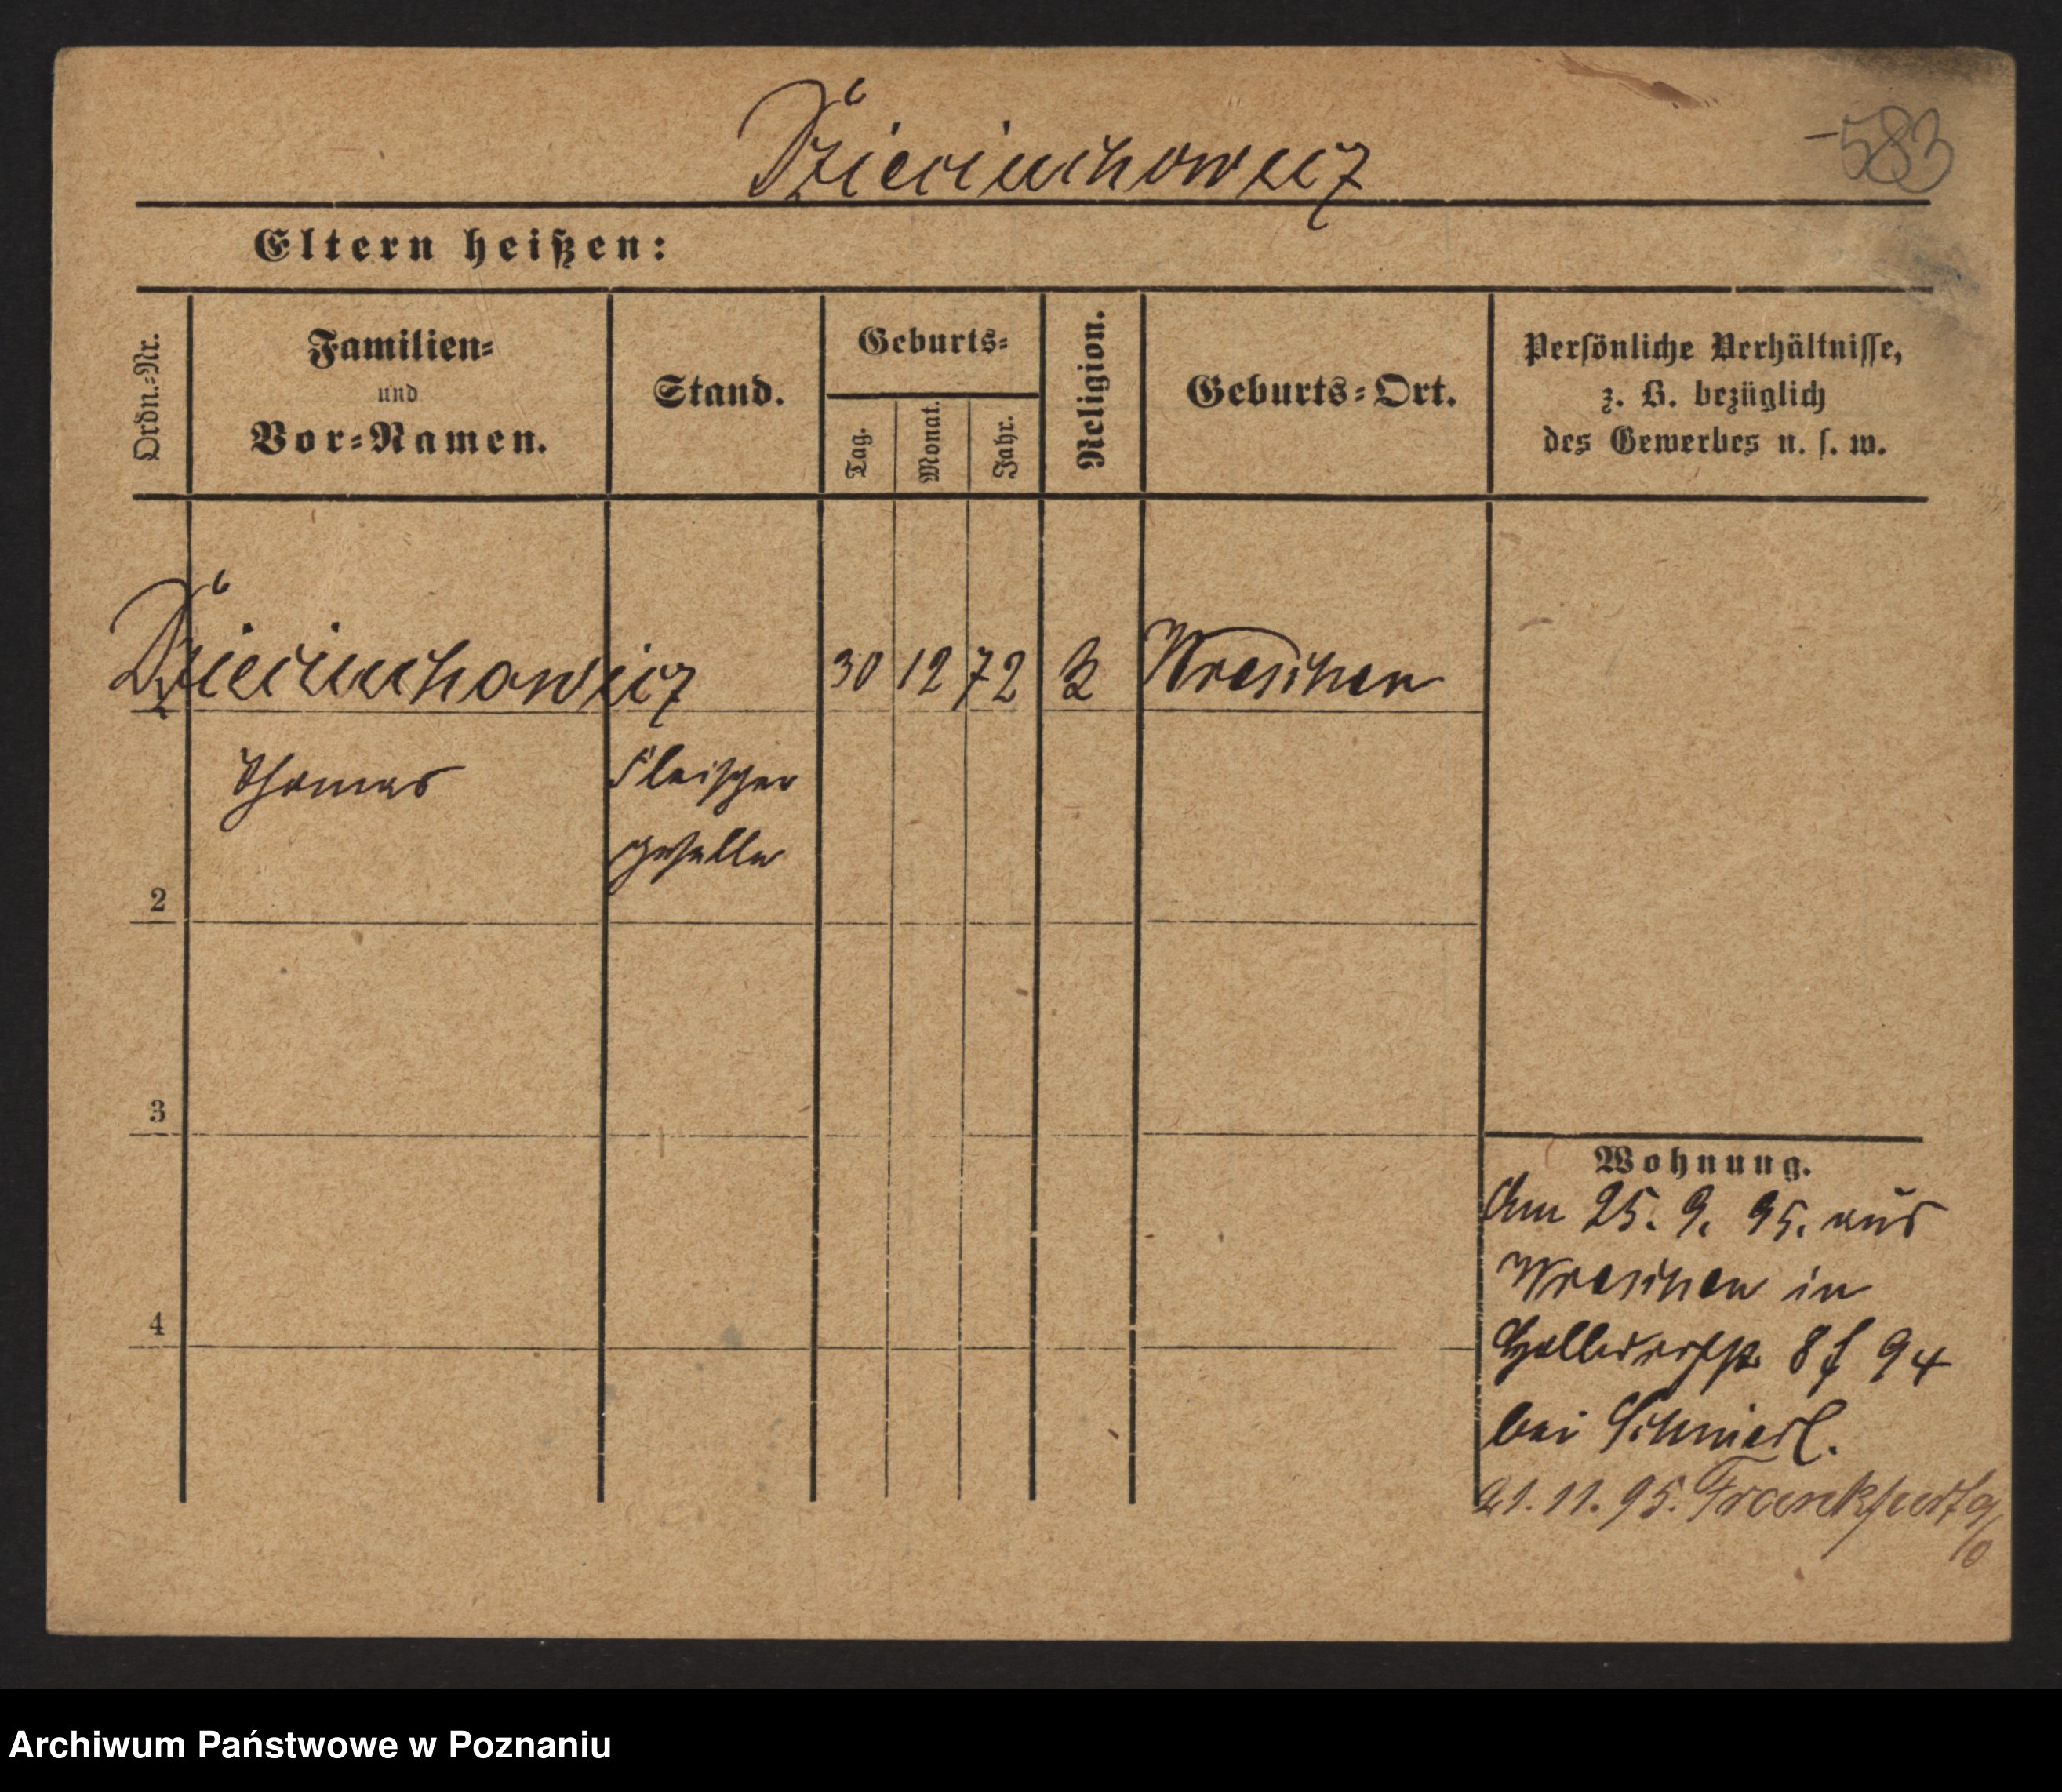 Dzieciuchowicz
583
Eltern heißen:
Ordn.=Nr.
Familien=
und
Vor=Namen.
Stand.
Geburts=
Tag.
Monat.
Jahr.
Religion.
Geburts=Ort.
Persönliche Verhältnisse,
z. B. bezüglich
des Gewerbes u. s. w.
Dzieciuchowicz 30 12 72 Wreschen
Thomas Fleischer
geselle
2
3
4
Wohnung.
Am 25. 9. 95. aus
Wreschen in
94
bei
21. 11. 95. Frankfurt a/O
Archiwum Państwowe w Poznaniu